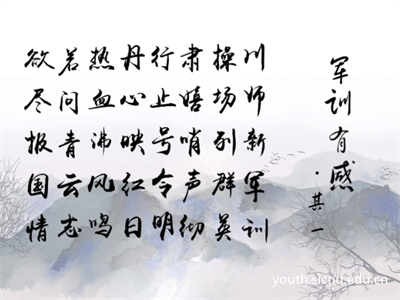 军训有感
·其一
川师新军训
操场列群英
肃嬉哨声彻
行止号令明
丹心映红日
热血沸风鸣
若问青云志
欲尽报国情
youth.sicnu.edu.cn